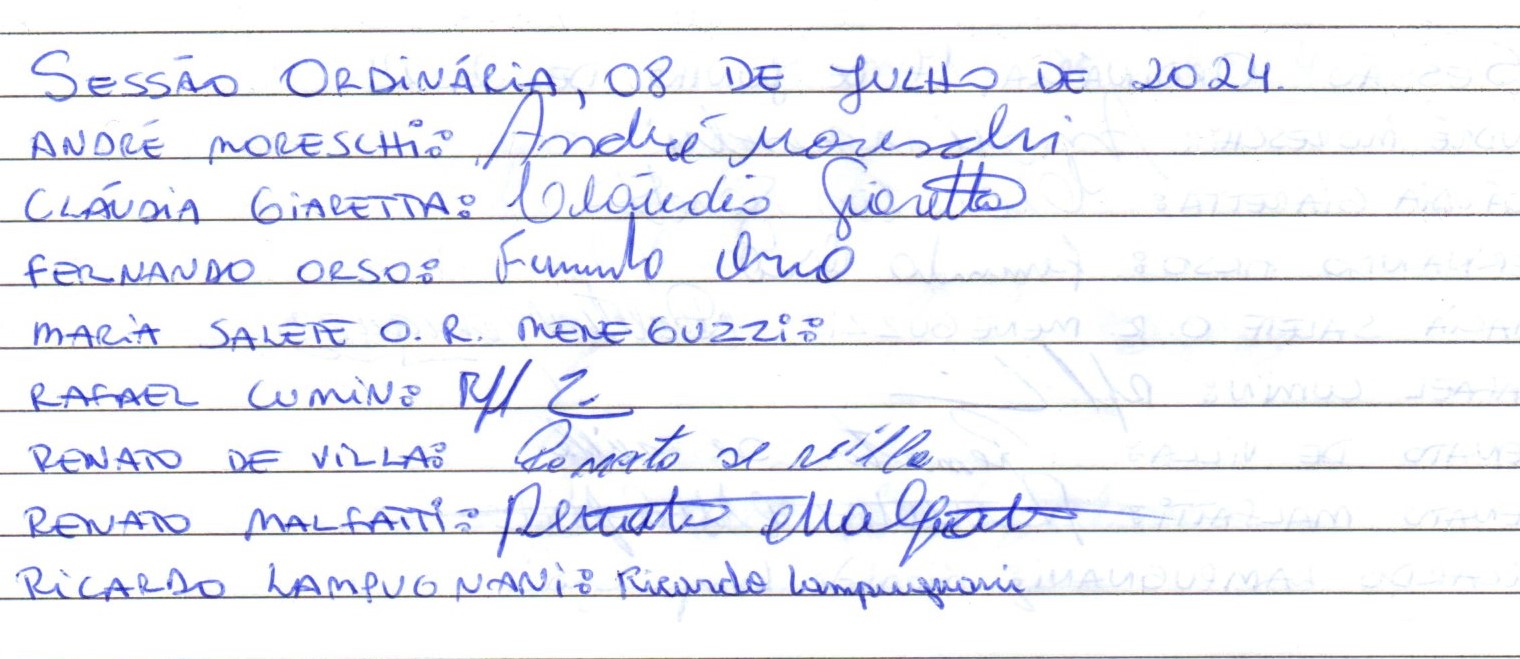 SESSÃO ORDINÁRIA, 08 DE JULHO DE 2024.
ANDRÉ MORESCHI: André Moreschi
CLÁUDIA GIARETTA: Cláudia Giaretta
FERNANDO ORSO: Fernando Orso
MARIA SALETE O. R. MENEGUZZI:
RAFAEL LUMIN:
RENATO DE VILLA: Renato de Villa
RENATO MALFATTI: Renato Malfatti
RICARDO LAMPUGNANI: Ricardo Lampugnani